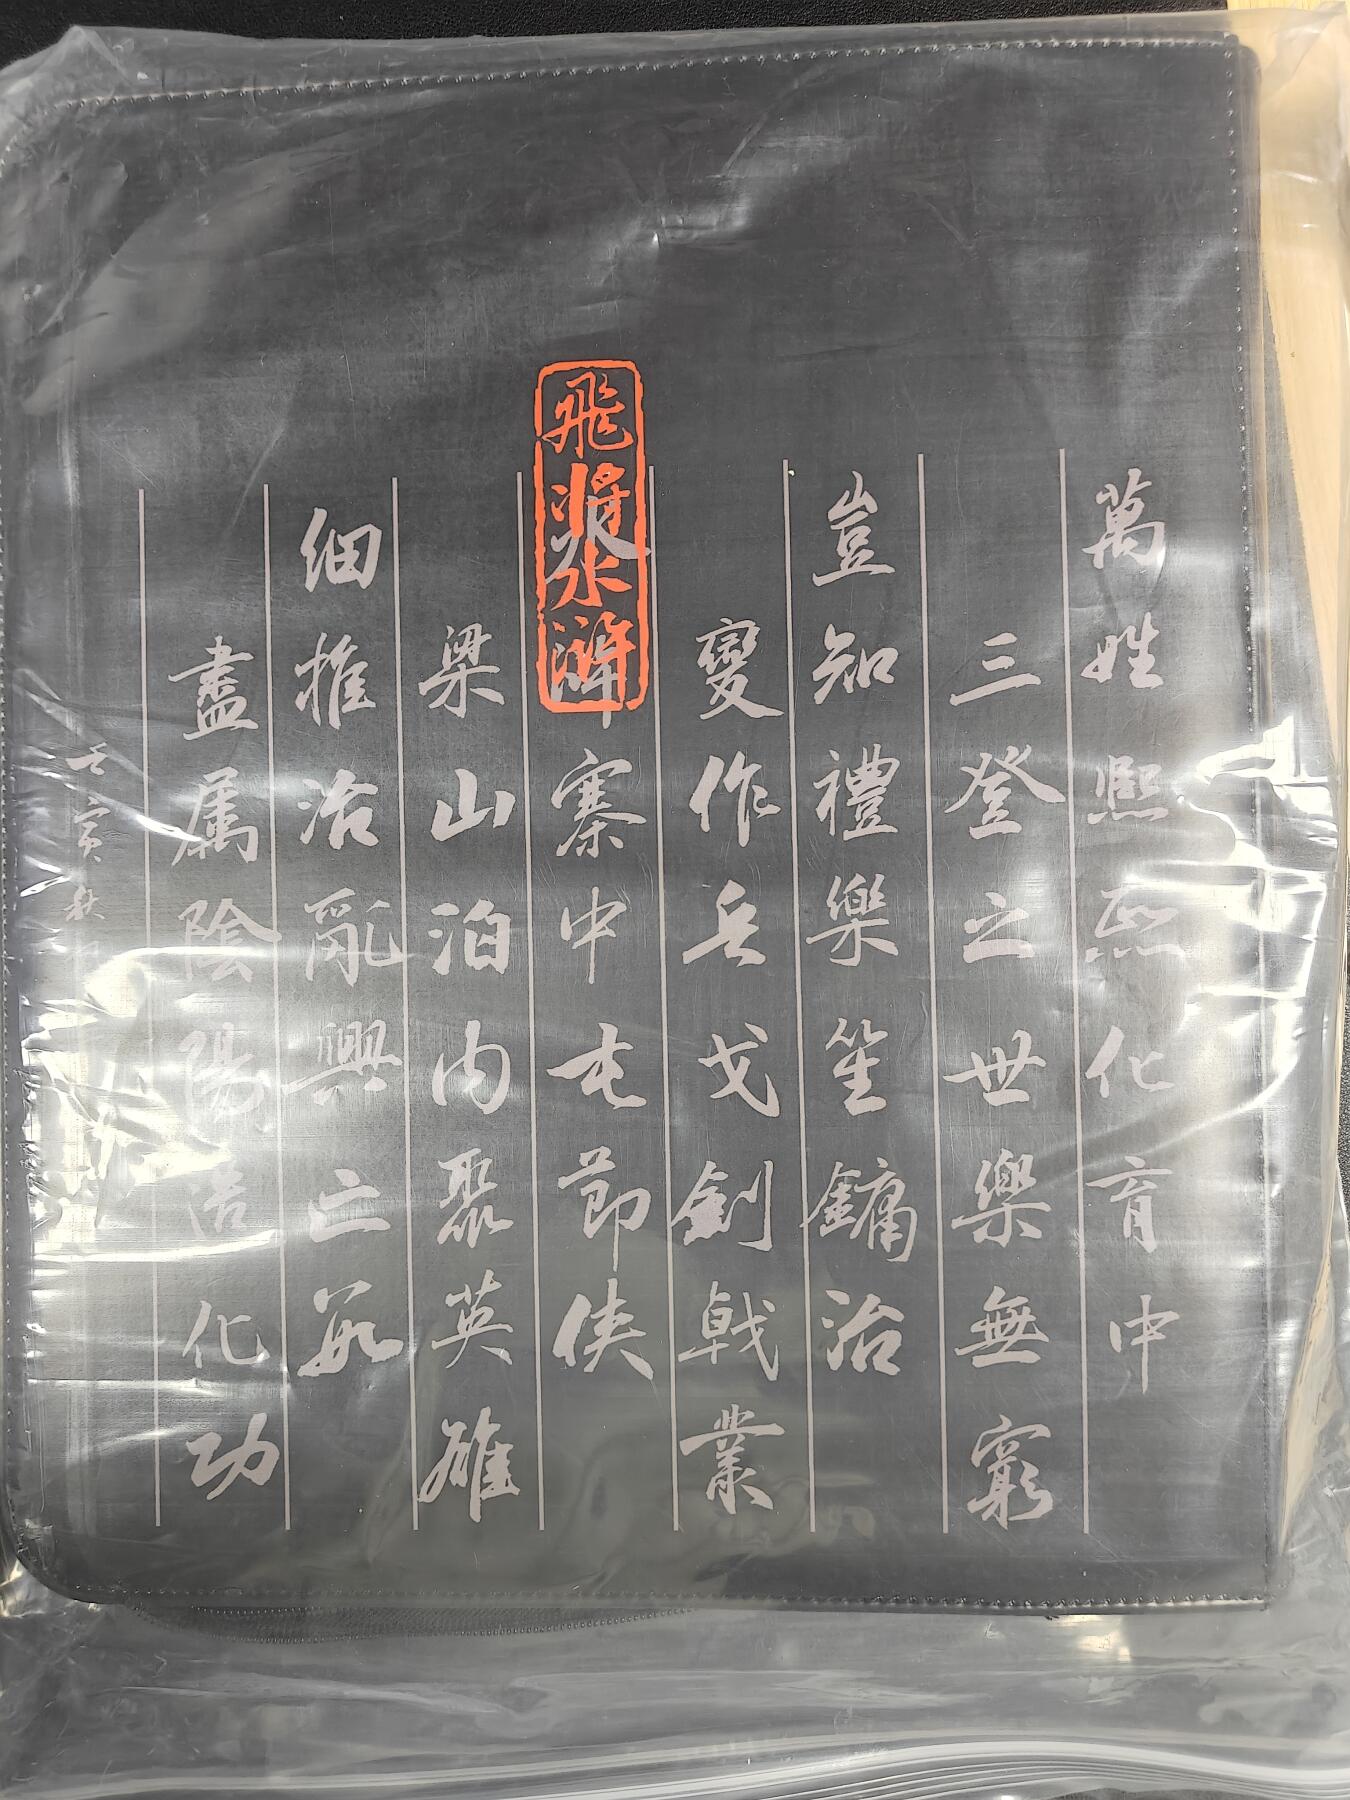 飛將水滸
萬姓熙熙化育中
三登之世樂無窮
豈知禮樂笙鏞治
變作兵戈劍戟叢
水滸寨中屯節俠
梁山泊內聚英雄
細推治亂興亡數
盡屬陰陽造化功
壬寅秋